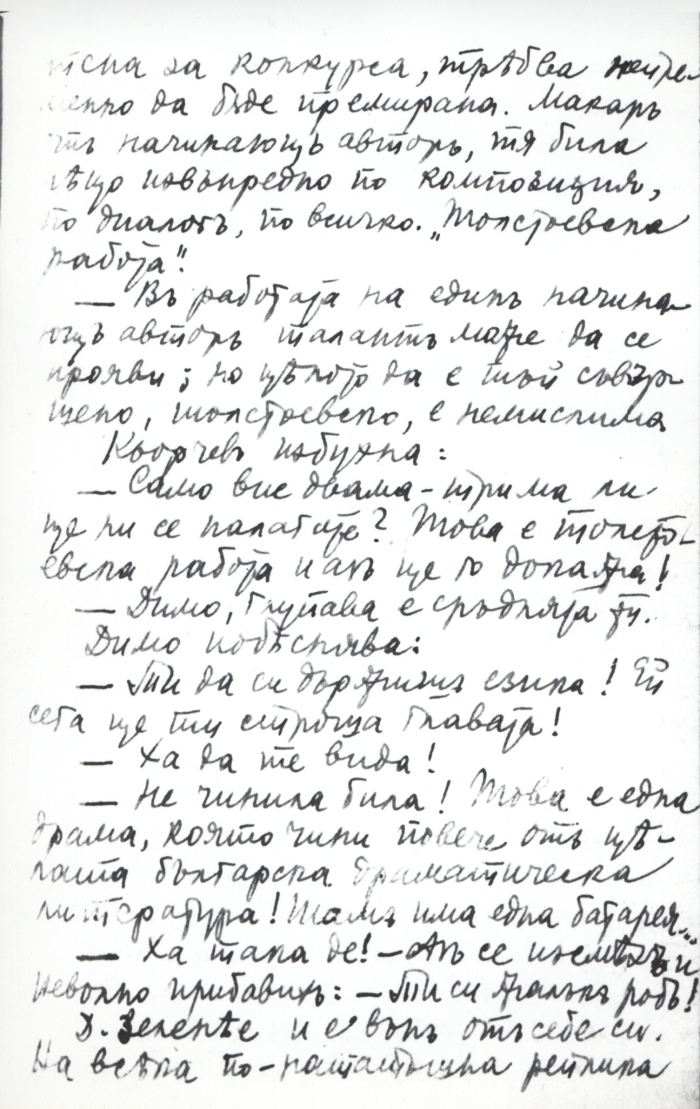 тена за конкурса, трѣбва непре-
менно да бѫде премирана. Макаръ
отъ начинающъ авторъ, тя била
нѣщо извънредно по композиция,
по диалогъ, по всичко. „Толстоевска
работа".
— Въ работата на единъ начина-
ющъ авторъ талантъ може да се
прояви; но цѣлото да е тъй съвър-
шено, толстоевско, е немислимо
Кьорчевъ избухна:
— Само вие двама-трима ли
ще ни се налагате? Това е толсто-
евска работа и азъ ще го докажа!
— Димо, глупава е срѣдната ти.
Димо побѣснява:
— Ти да си държишъ езика! Ей
сега ще ти строша главата!
— Ха да те видя!
— Не чинила била! Това е една
драма, която чини повече отъ цѣ-
лата българска драматическа
литература! Тамъ има една батарея...
— Ха така де! — Азъ се изсмѣхъ и
неволно прибавихъ: — Ти си жалъкъ робъ!
Д. Зеленѣе и е вънъ отъ себе си.
На всѣка по-нататъшна реплика